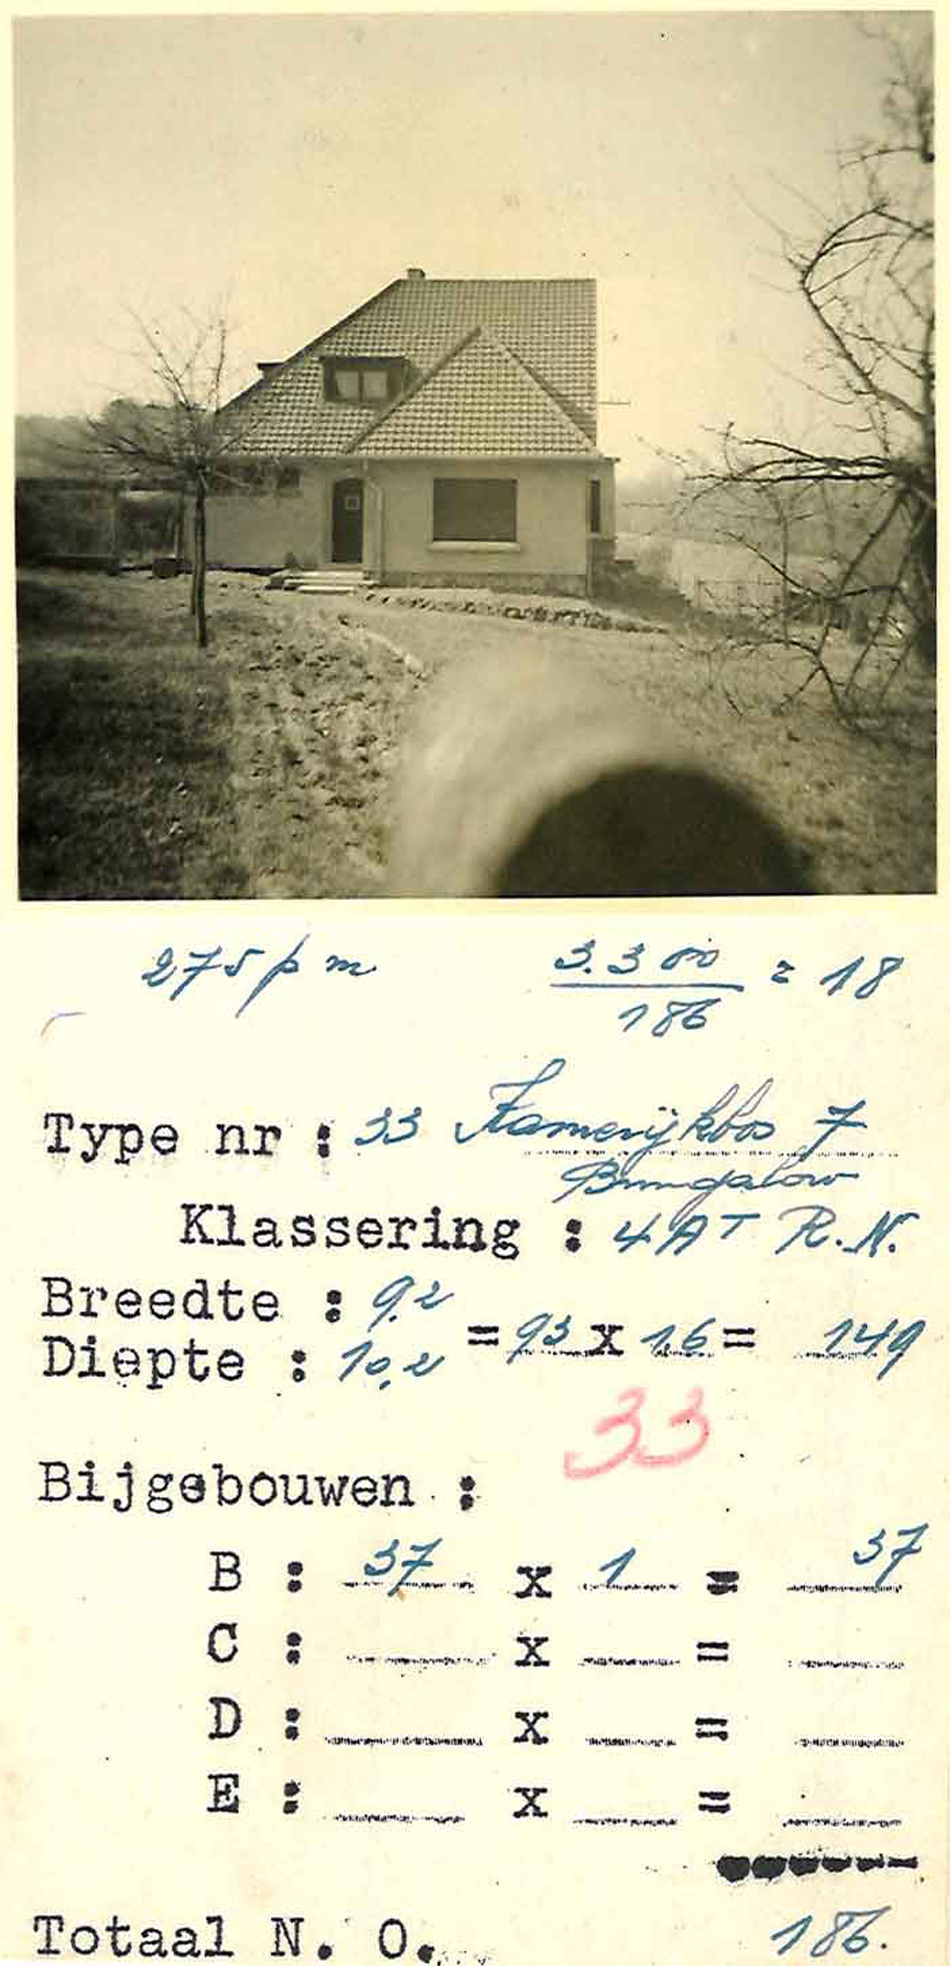 275 p m
3.300 / 186 = 18
Type nr : 33 Kamerijkbos 7
Bungalow
Klassering : 4AT R.N.
Breedte : 9,2
Diepte : 10,2 = 93 x 1,6 = 149
33
Bijgebouwen :
B : 37 x 1 = 37
C : x =
D : x =
E : x =
Totaal N. O. 186.